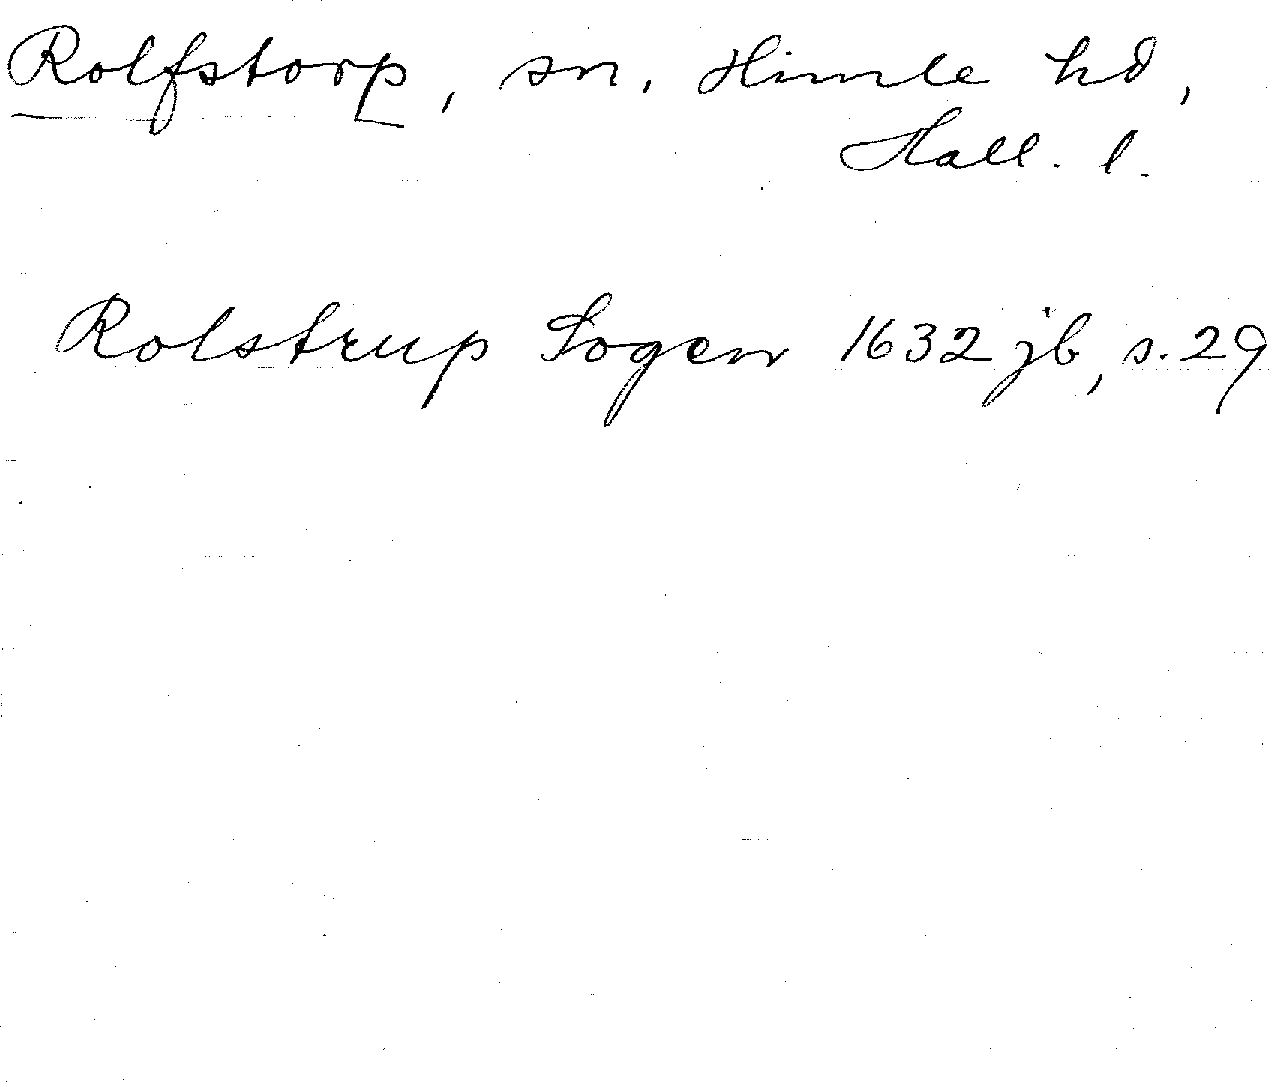 Rolfstorp, sn. Himle hd,
Hall. l.
Rolstrup Sogen 1632 jb, s. 29